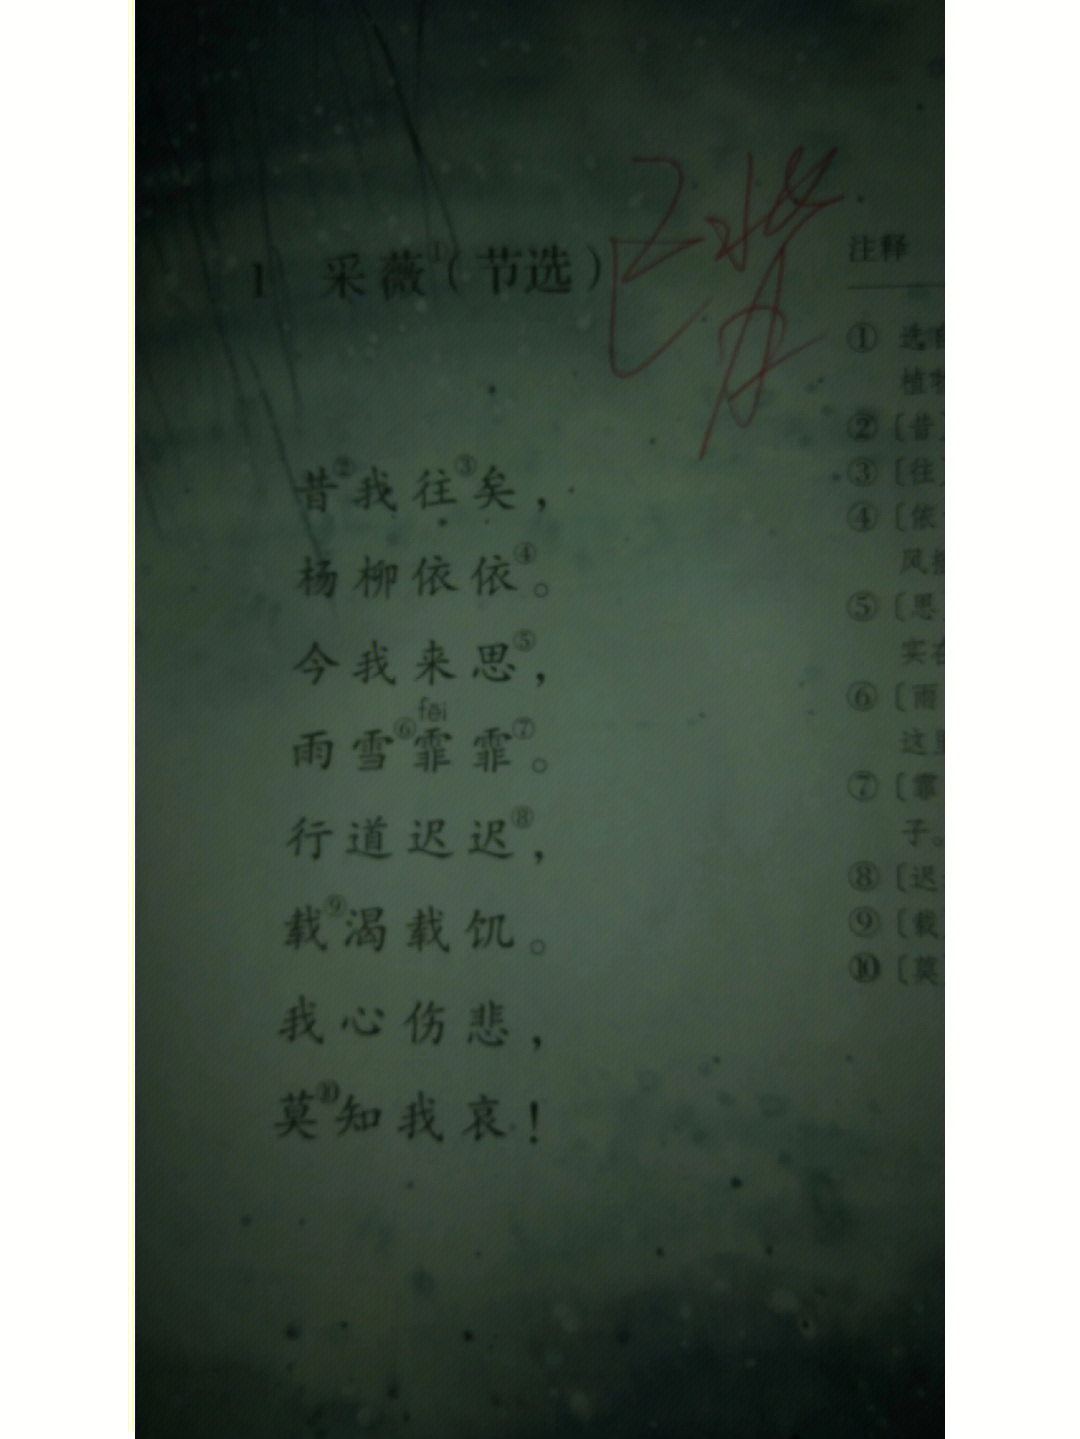 1 采薇①（节选）
昔②我往③矣，
杨柳依依④。
今我来思⑤，
fēi
雨雪⑥霏霏⑦。
行道迟迟⑧，
载⑨渴载饥。
我心伤悲，
莫⑩知我哀！
注释
① 选
植
②〔昔〕
③〔往〕
④〔依
风
⑤〔思〕
实在
⑥〔雨
这里
⑦〔霏
子。
⑧〔迟
⑨〔载
⑩〔莫